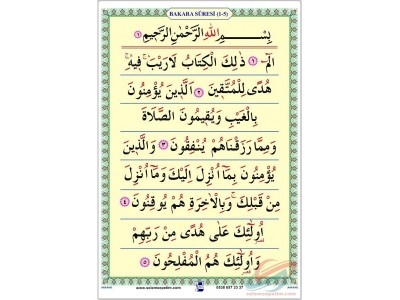 BAKARA SÛRESİ (1-5)
بِسْمِ اللّٰهِ الرَّحْمٰنِ الرَّحِيمِ ١
الٓمٓ ١ ذٰلِكَ الْكِتَابُ لَا رَيْبَۚۛ ف۪يهِۚۛ
هُدًى لِلْمُتَّق۪ينَ ٢ اَلَّذ۪ينَ يُؤْمِنُونَ
بِالْغَيْبِ وَيُق۪يمُونَ الصَّلٰوةَ
وَمِمَّا رَزَقْنَاهُمْ يُنْفِقُونَ ٣ وَالَّذ۪ينَ
يُؤْمِنُونَ بِمَٓا اُنْزِلَ اِلَيْكَ وَمَٓا اُنْزِلَ
مِنْ قَبْلِكَۚ وَبِالْاٰخِرَةِ هُمْ يُوقِنُونَ ٤
اُو۬لٰٓئِكَ عَلٰى هُدًى مِنْ رَبِّهِمْ
وَاُو۬لٰٓئِكَ هُمُ الْمُفْلِحُونَ ٥